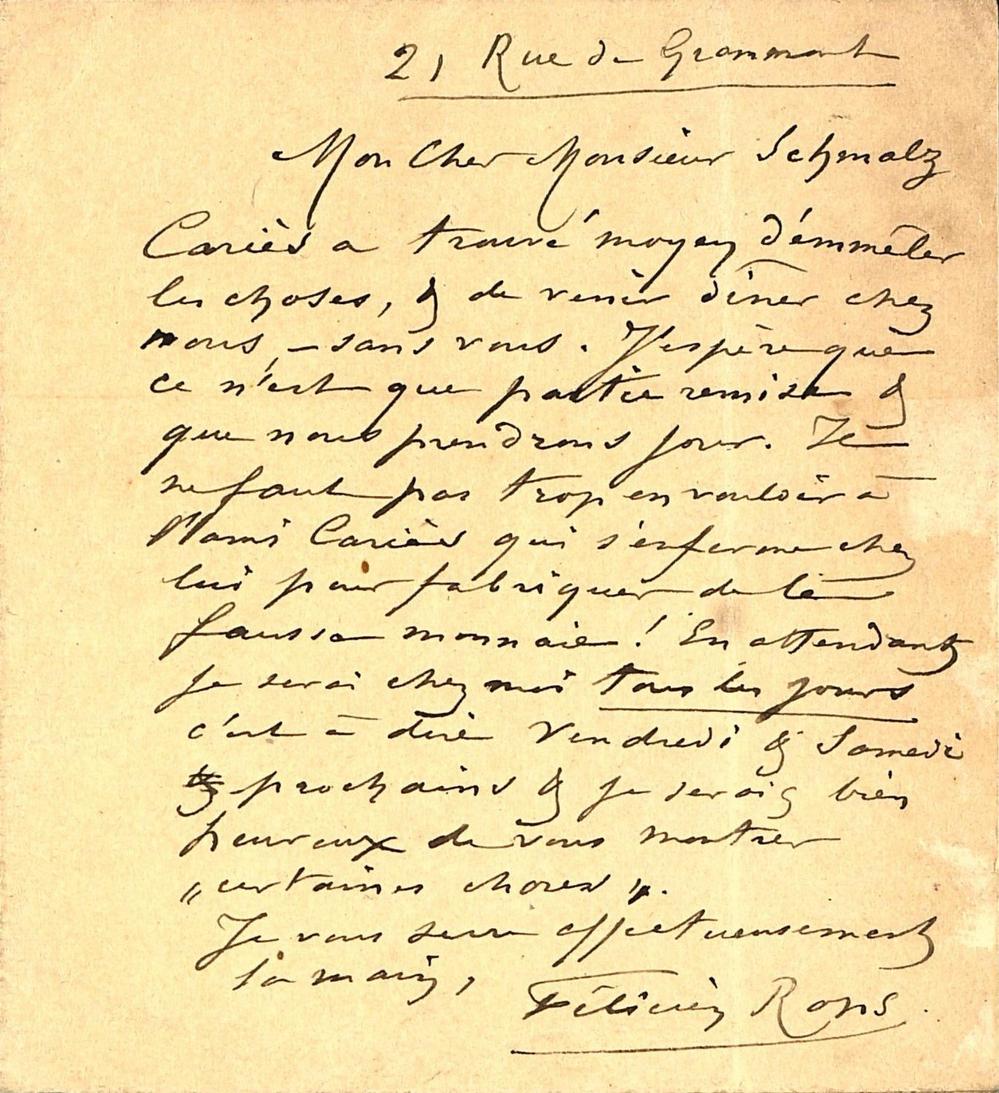 21 Rue de Grammont
Mon Cher Monsieur Schmalz
Cariès a trouvé moyen d'émmêler
les choses, & de venir dîner chez
nous, – sans vous. J'espère que
ce n'est que partie remise &
que nous prendrons jour. Il
ne faut pas trop en vouloir à
l'ami Cariès qui s'enferme chez
lui pour fabriquer de la
fausse monnaie ! En attendant
je serai chez moi tous les jours
c'est à dire Vendredi & Samedi
prochains & je serais bien
heureux de vous montrer
„certaines choses„.
Je vous serre affectueusement
la main,
Félicien Rops.